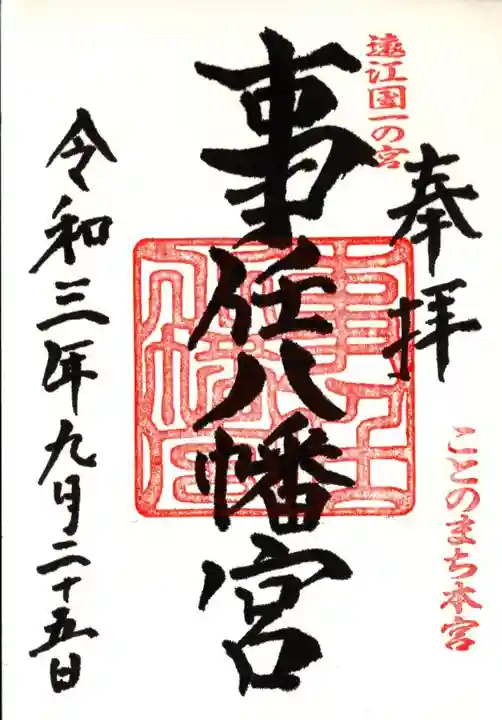 遠江国一の宮
奉拝
ことのまち本宮
事任八幡宮
令和三年九月二十五日